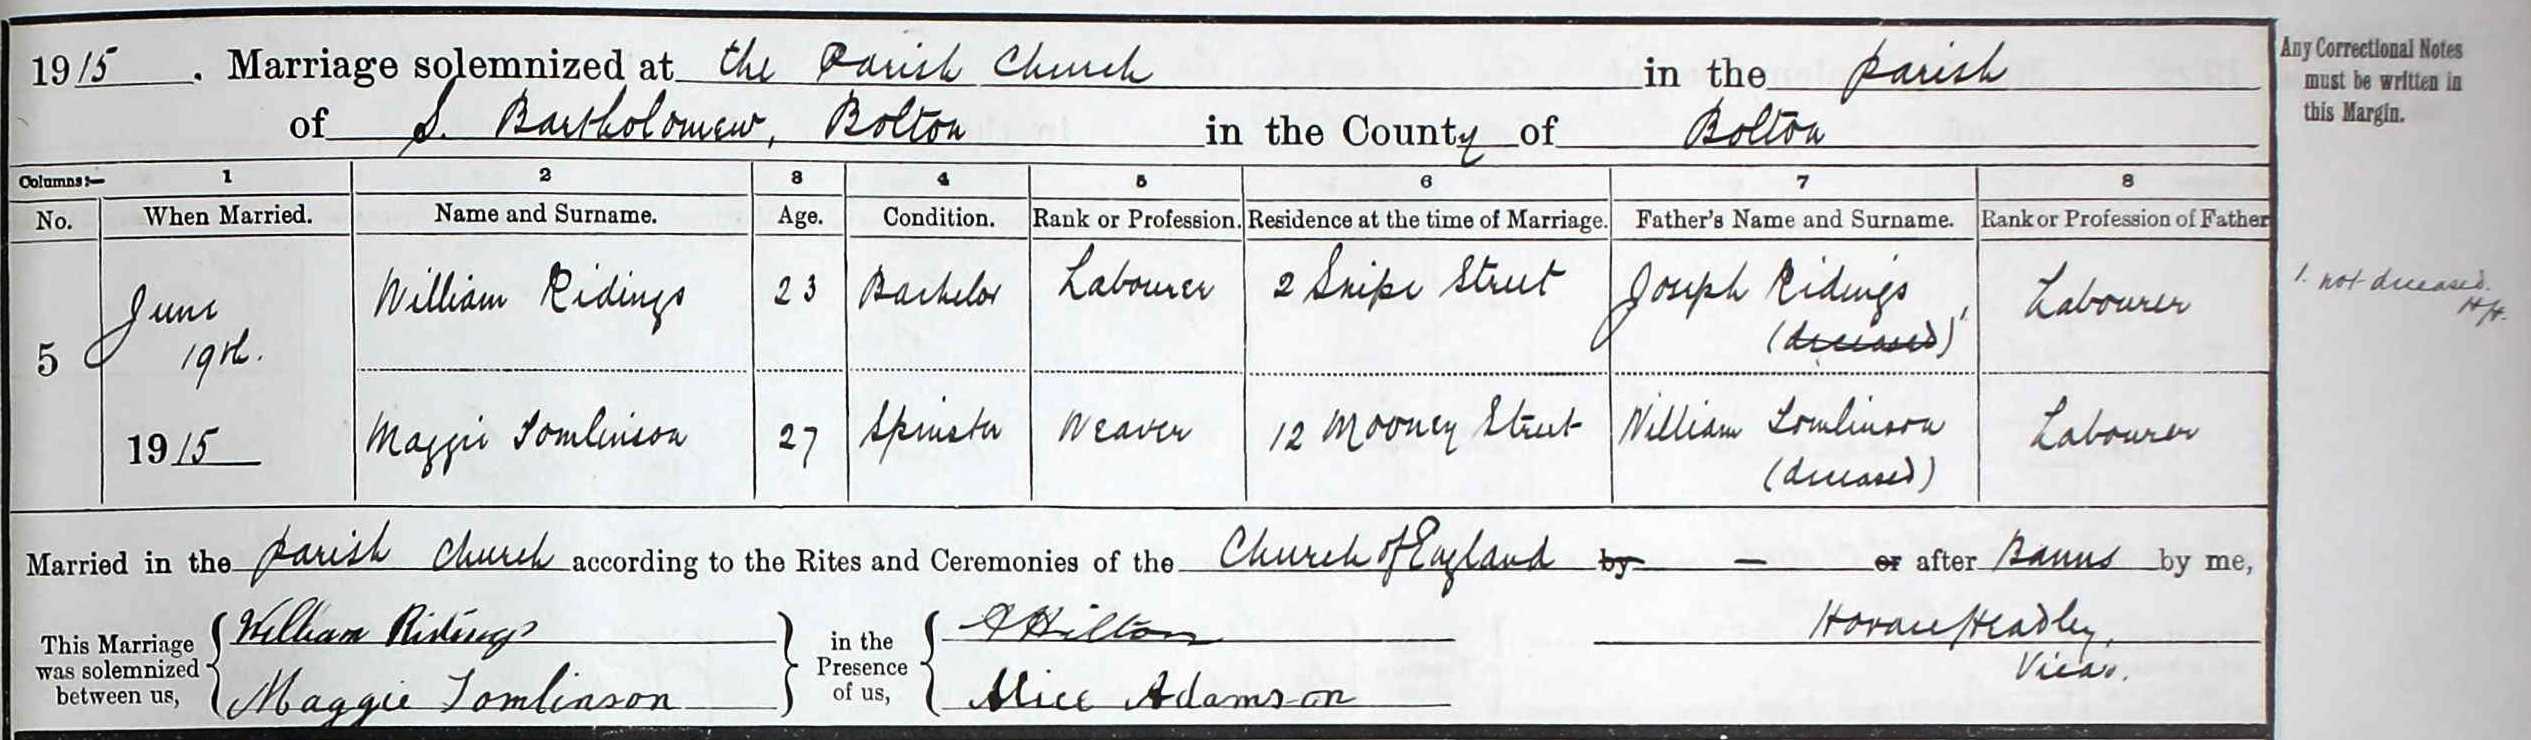 1915. Marriage solemnized at the Parish Church in the Parish
of S. Bartholomew, Bolton in the County of Bolton
Any Correctional Notes
must be written in
this Margin.
Columns:— 1 2 3 4 5 6 7 8
No. When Married. Name and Surname. Age. Condition. Rank or Profession. Residence at the time of Marriage. Father's Name and Surname. Rank or Profession of Father
5 June 19th. 1915
William Ridings 23 Bachelor Labourer 2 Snipe Street Joseph Ridings (deceased)¹ Labourer
1. not deceased.
H.H.
Maggie Tomlinson 27 Spinster Weaver 12 Mooney Street William Tomlinson (deceased) Labourer
Married in the Parish Church according to the Rites and Ceremonies of the Church of England by — or after Banns by me,
This Marriage was solemnized between us, William Ridings
Maggie Tomlinson
in the Presence of us, Hilton
Alice Adamson
Horace Headley,
Vicar.